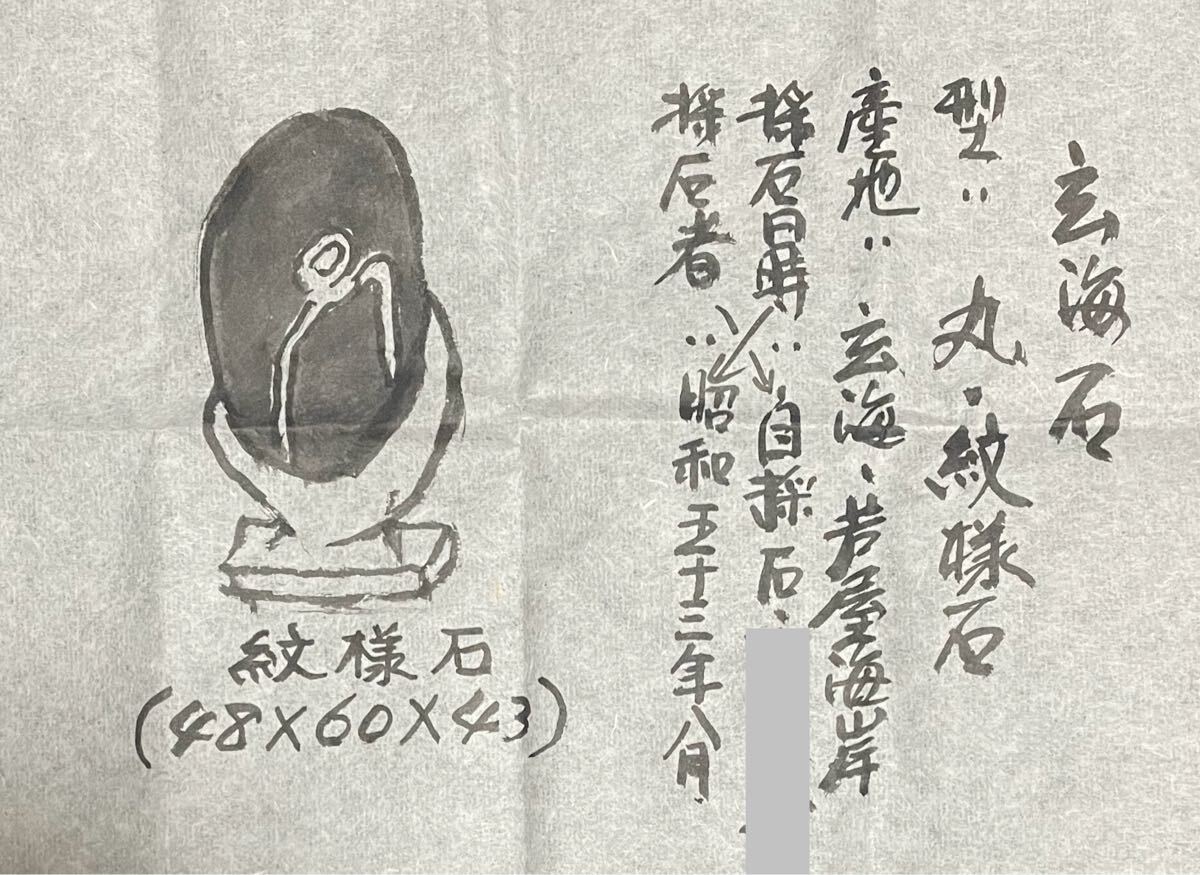 玄海石
型‥ 丸・紋様石
産地‥ 玄海・芦屋海岸
採石日時‥自採石・
採石者‥昭和五十三年八月
紋様石
(48×60×43)